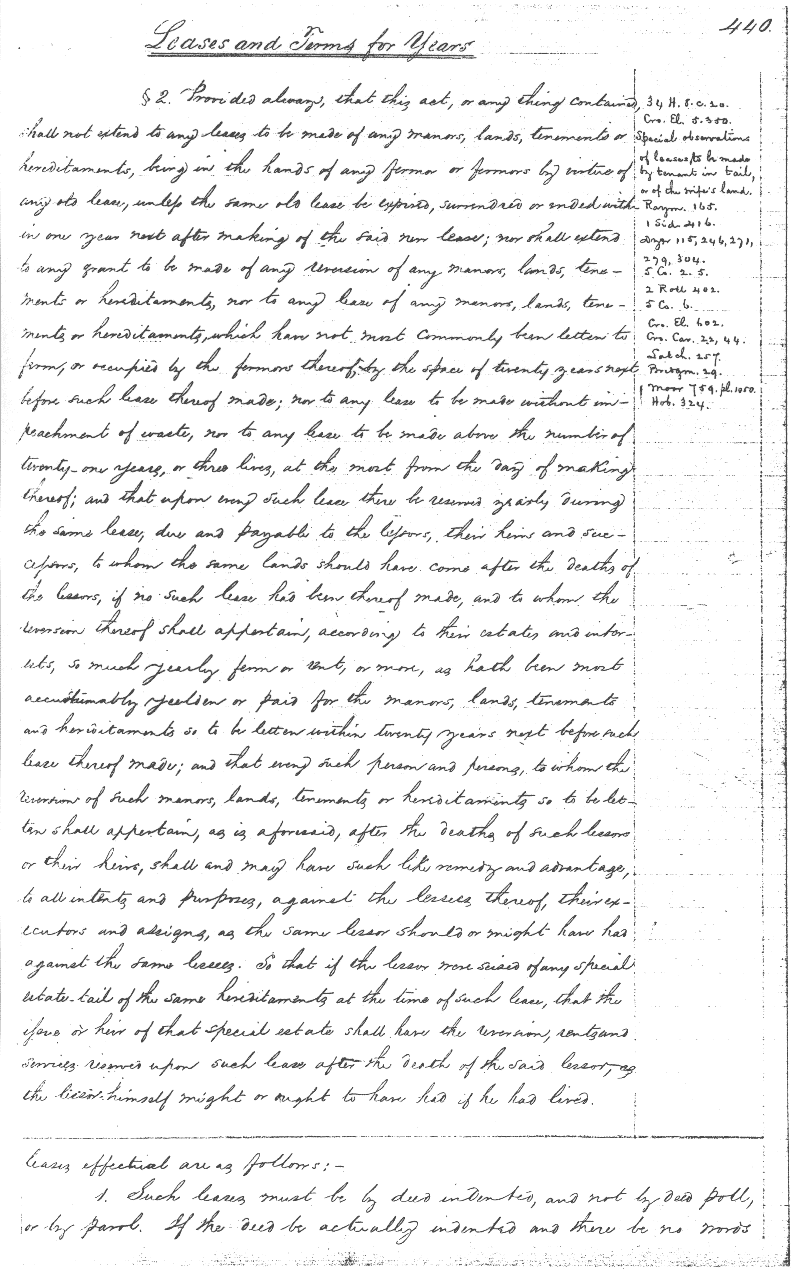 440.
Leases and Terms for Years
§ 2. Provided always, that this act, or any thing contained,
shall not extend to any leases to be made of any manors, lands, tenements or
hereditaments, being in the hands of any fermor or fermors by virtue of
any old lease, unless the same old lease be expired, surrendred or ended with-
in one year next after making of the said new lease; nor shall extend
to any grant to be made of any reversion of any manors, lands, tene-
ments or hereditaments, nor to any lease of any manors, lands, tene-
ments or hereditaments, which have not most commonly been letten to
ferm, or occupied by the fermors thereof, by the space of twenty years next
before such lease thereof made; nor to any lease to be made without im-
peachment of waste, nor to any lease to be made above the number of
twenty-one years, or three lives, at the most from the day of making
thereof; and that upon every such lease there be reserved yearly during
the same lease, due and payable to the lessors, their heirs and suc-
cessors, to whom the same lands should have come after the deaths of
the lessors, if no such lease had been thereof made, and to whom the
reversion thereof shall appertain, according to their estates and inter-
ests, so much yearly ferm or rent, or more, as hath been most
accustumably yeelden or paid for the manors, lands, tenements
and hereditaments so to be letten within twenty years next before such
lease thereof made; and that every such person and persons, to whom the
reversion of such manors, lands, tenements or hereditaments so to be let-
ten shall appertain, as is aforesaid, after the deaths of such lessors
or their heirs, shall and may have such like remedy and advantage,
to all intents and purposes, against the lessees thereof, their ex-
ecutors and assigns, as the same lessor should or might have had
against the same lessees. So that if the lessor were seised of any special
estate-tail of the same hereditaments at the time of such lease, that the
issue or heir of that special estate shall have the reversion, rents and
services reserved upon such lease after the death of the said lessor, as
the lessor himself might or ought to have had if he had lived.
34 H. 8. c. 20.
Cro. El. 5. 350.
Special observations
of leases to be made
by tenant in tail,
or of the wife's land.
Raym. 165.
1 Sid. 416.
Dyer 115, 246, 271,
279, 304.
5 Co. 2. 5.
2 Roll 402.
5 Co. 6.
Cro. El. 602.
Cro. Car. 22, 44.
Latch. 257.
Bridgm. 29.
Moor 759. pl. 1050.
Hob. 324.
leases effectual are as follows:-
1. Such leases must be by deed indented, and not by deed poll,
or by parol. If the deed be actually indented and there be no words